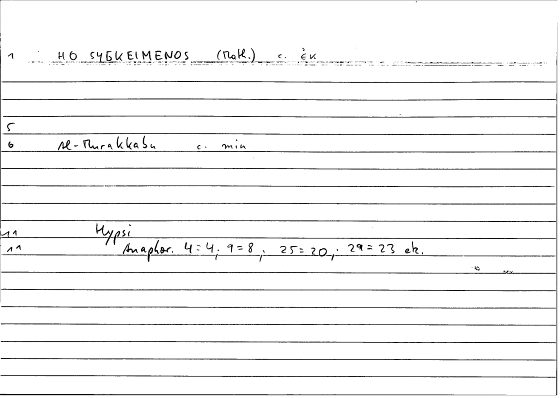 1 HO SYGKEIMENOS (Math.) c. ἐκ
5
6 al-Murakkabu c. min
11 Hypsi
11 Anaphor. 4=4; 9=8; 25=20; 29=23 etc.